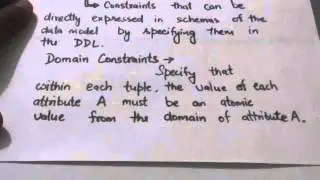 ↳ Constraints that can be
directly expressed in schemas of the
data model by specifying them in
the DDL.
Domain Constraints →
Specify that
within each tuple, the value of each
attribute A must be an atomic
value from the domain of attribute A.